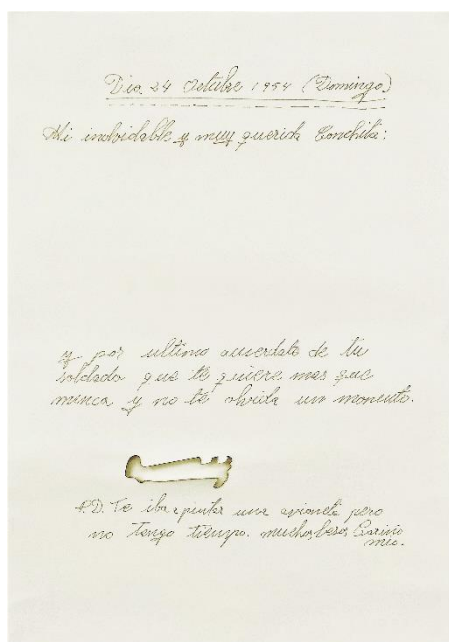 Dia 24 Octubre 1954 (Domingo)
Mi inolvidable y muy querida Conchita:
y por ultimo acuerdate de tu
soldado que te quiere mas que
nunca y no te olvida un momento.
P.D. Te iba a pintar una avioneta pero
no tengo tiempo. muchos besos Cariño
mio.